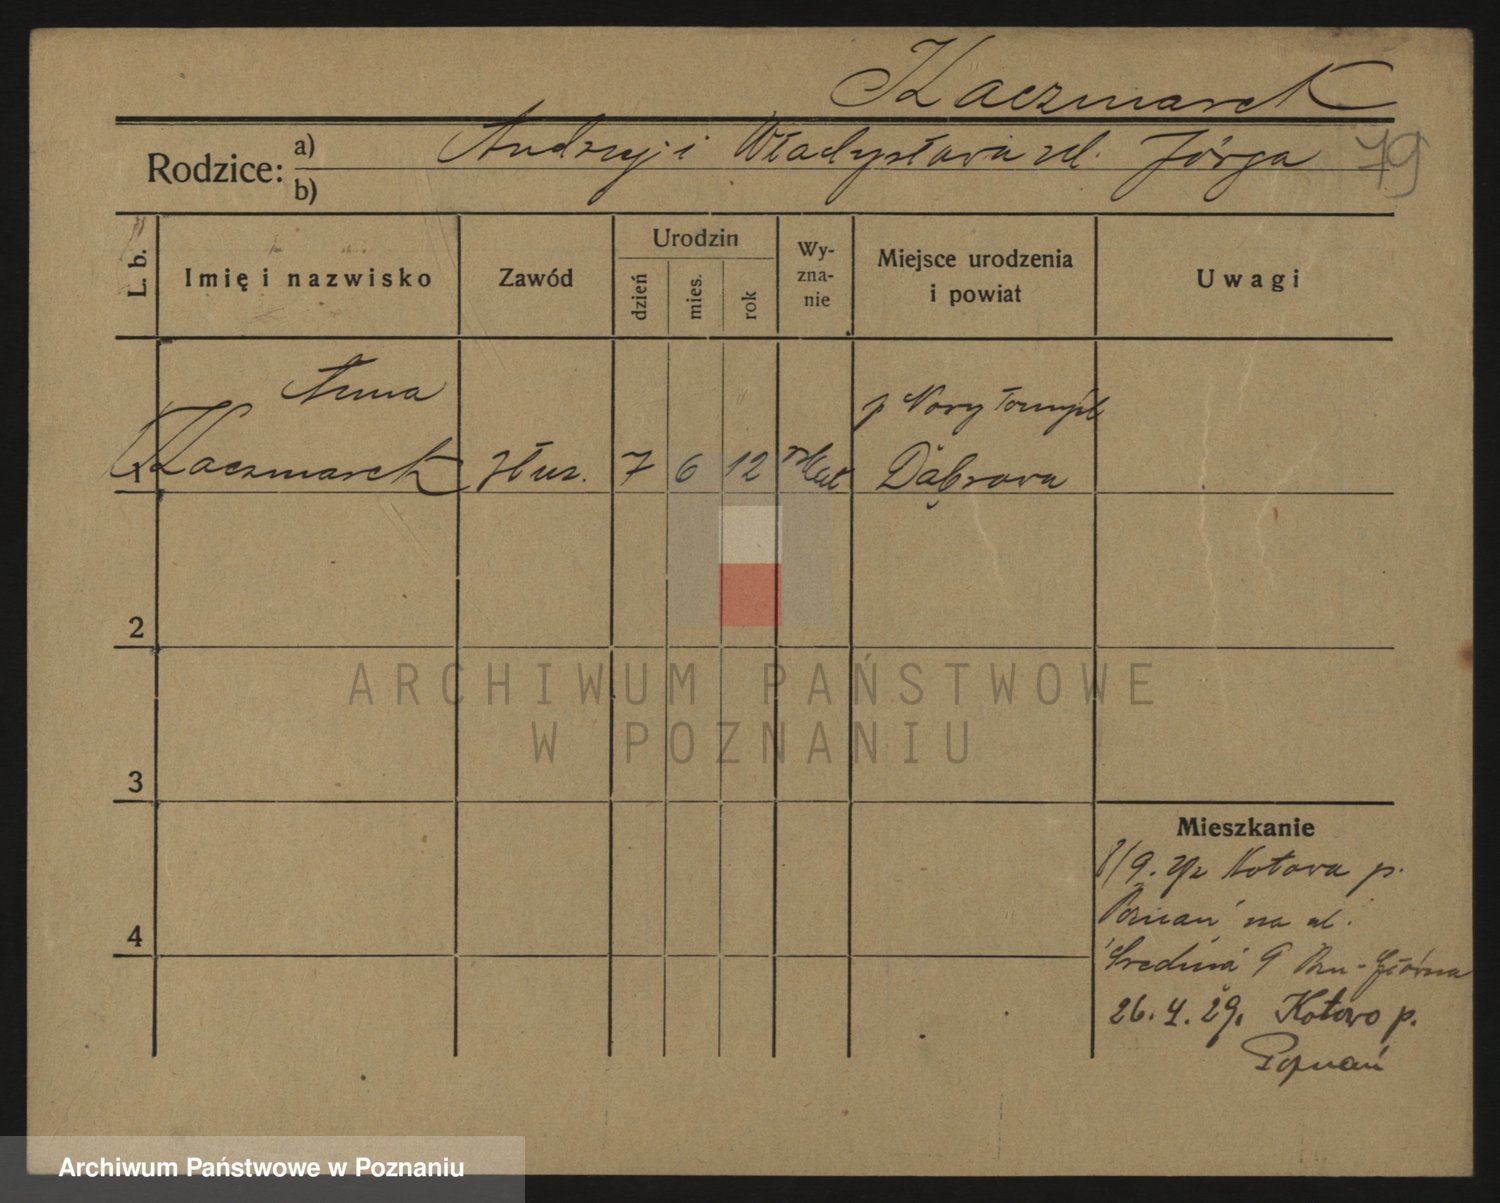 Kaczmarek
Rodzice: a) Andrzej i Władysława zd. Jórga 79
b)
L. b. Imię i nazwisko Zawód Urodzin dzień mies. rok Wyznanie Miejsce urodzenia i powiat Uwagi
Anna p Nowy Tomyśl
1 Kaczmarek słuz. 7 6 12 Dąbrowa
2
ARCHIWUM PAŃSTWOWE
W POZNANIU
3
Mieszkanie
Kotowa p.
Poznań na ul.
4
Średnia 9 Pzn-Główna
26.4.29. Kotowo p.
Poznań
Archiwum Państwowe w Poznaniu